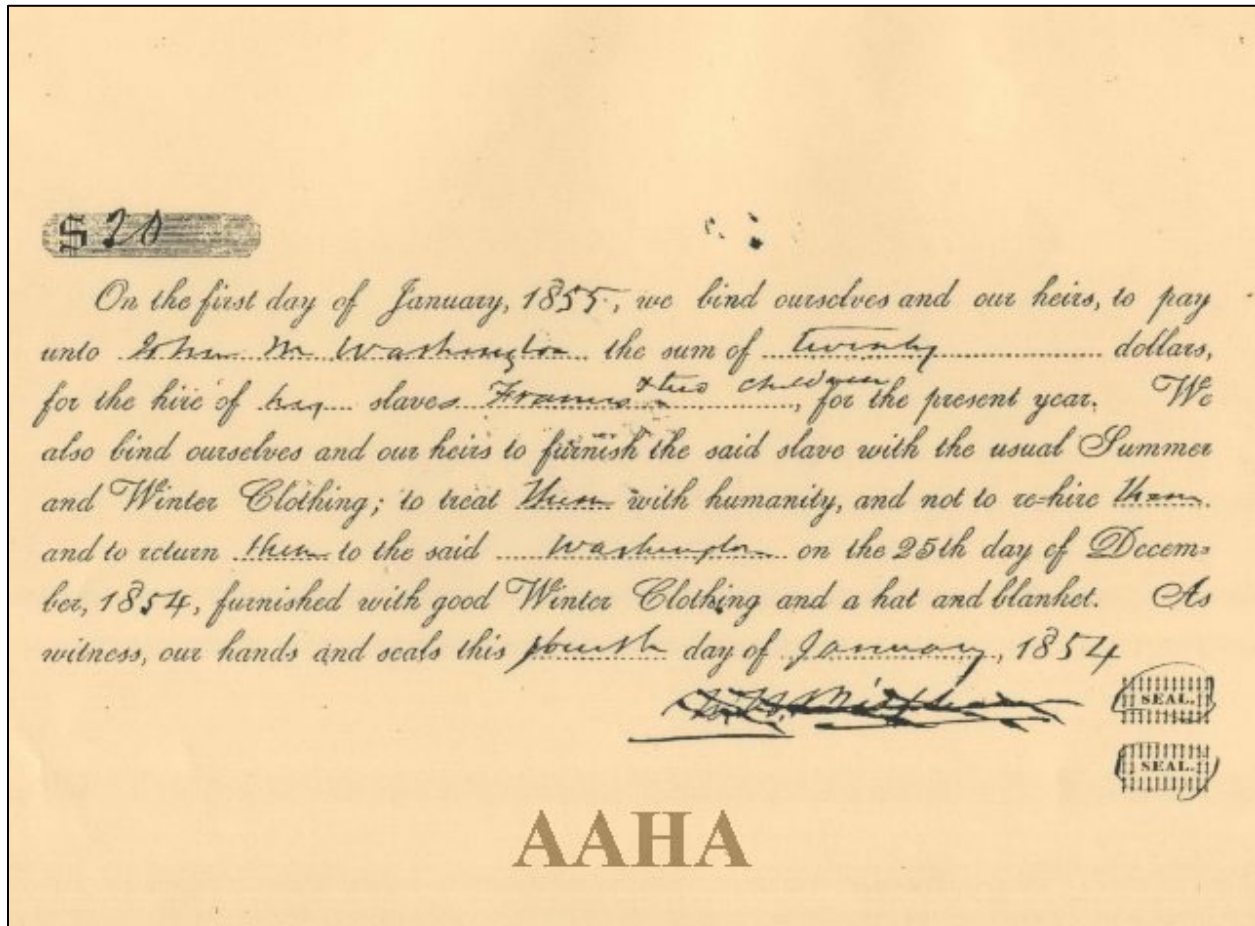 $ 20
On the first day of January, 1855, we bind ourselves and our heirs, to pay
unto John M Washington the sum of twenty dollars,
for the hire of slaves Frances & two children, for the present year. We
also bind ourselves and our heirs to furnish the said slave with the usual Summer
and Winter Clothing; to treat them with humanity, and not to re-hire them
and to return them to the said Washington on the 25th day of Decem-
ber, 1854, furnished with good Winter Clothing and a hat and blanket. As
witness, our hands and seals this fourth day of January, 1854
SEAL.
SEAL.
AAHA